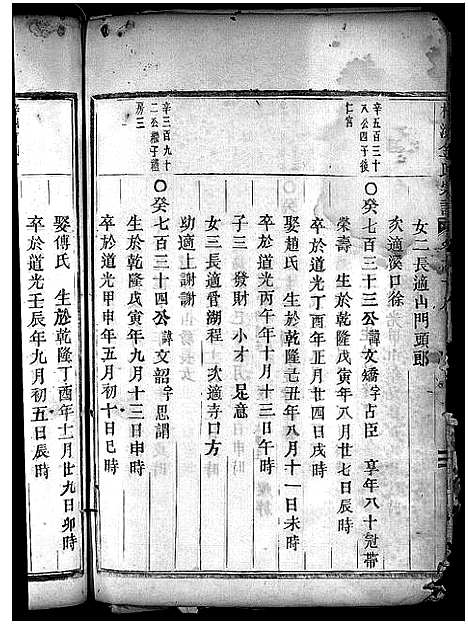 女二長適山門頭郎
次適溪口徐
辛五百三十
八公四午後
仁宮
〇癸七百三十三公諱文嬌字占臣 享年八十冠帶
榮壽 生於乾隆戊寅年八月廿七日辰時
卒於道光丁酉年正月廿四日戌時
娶趙氏 生於乾隆己丑年八月十一日未時
卒於道光丙午年十月十三日午時
子三 發財 小才 足意
女三長適管湖程 次適寺口方
幼適上謝謝
辛三百九十
二公
房三
〇癸七百三十四公諱文韶字思謂
生於乾隆戊寅年九月十三日申時
卒於道光甲申年五月初十日巳時
娶傅氏 生於乾隆丁酉年十二月廿九日卯時
卒於道光壬辰年九月初五日辰時